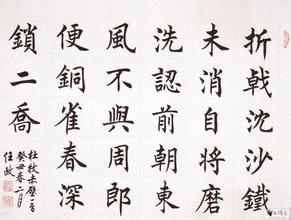 折戟沈沙鐵
未消自将磨
洗認前朝東
風不與周郎
便銅雀春深
鎖二喬
杜牧赤壁一首
癸丑春二月
任政